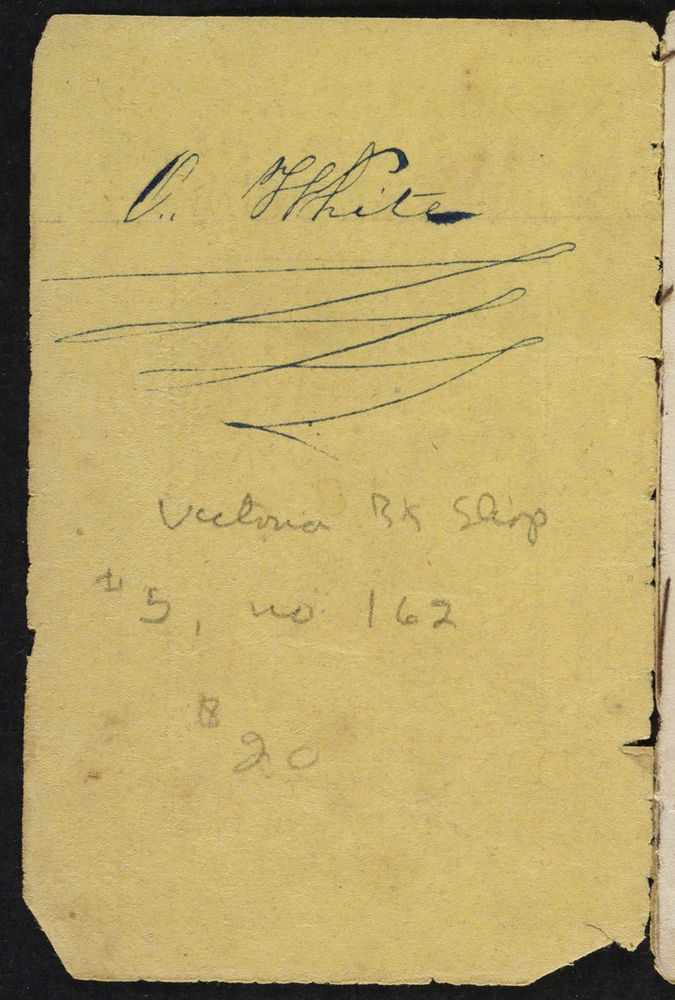 C. White
Victoria Bk Shop
#5, no 162
$20